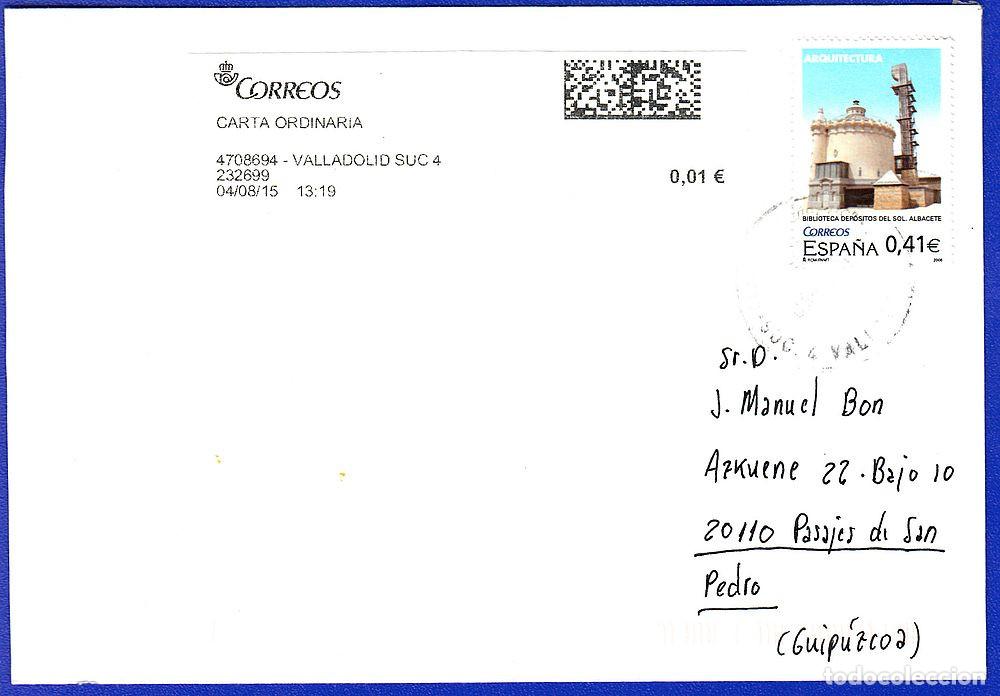 CORREOS
CARTA ORDINARIA
4708694 - VALLADOLID SUC 4
232699
04/08/15 13:19
0,01 €
ARQUITECTURA
BIBLIOTECA DEPÓSITOS DEL SOL. ALBACETE
CORREOS
ESPAÑA 0,41€
2008
SUC. 4 VALL
Sr. D.
J. Manuel Bon
Azkuene 22 . Bajo 10
20110 Pasajes di San
Pedro
(Guipúzcoa)
todocoleccion